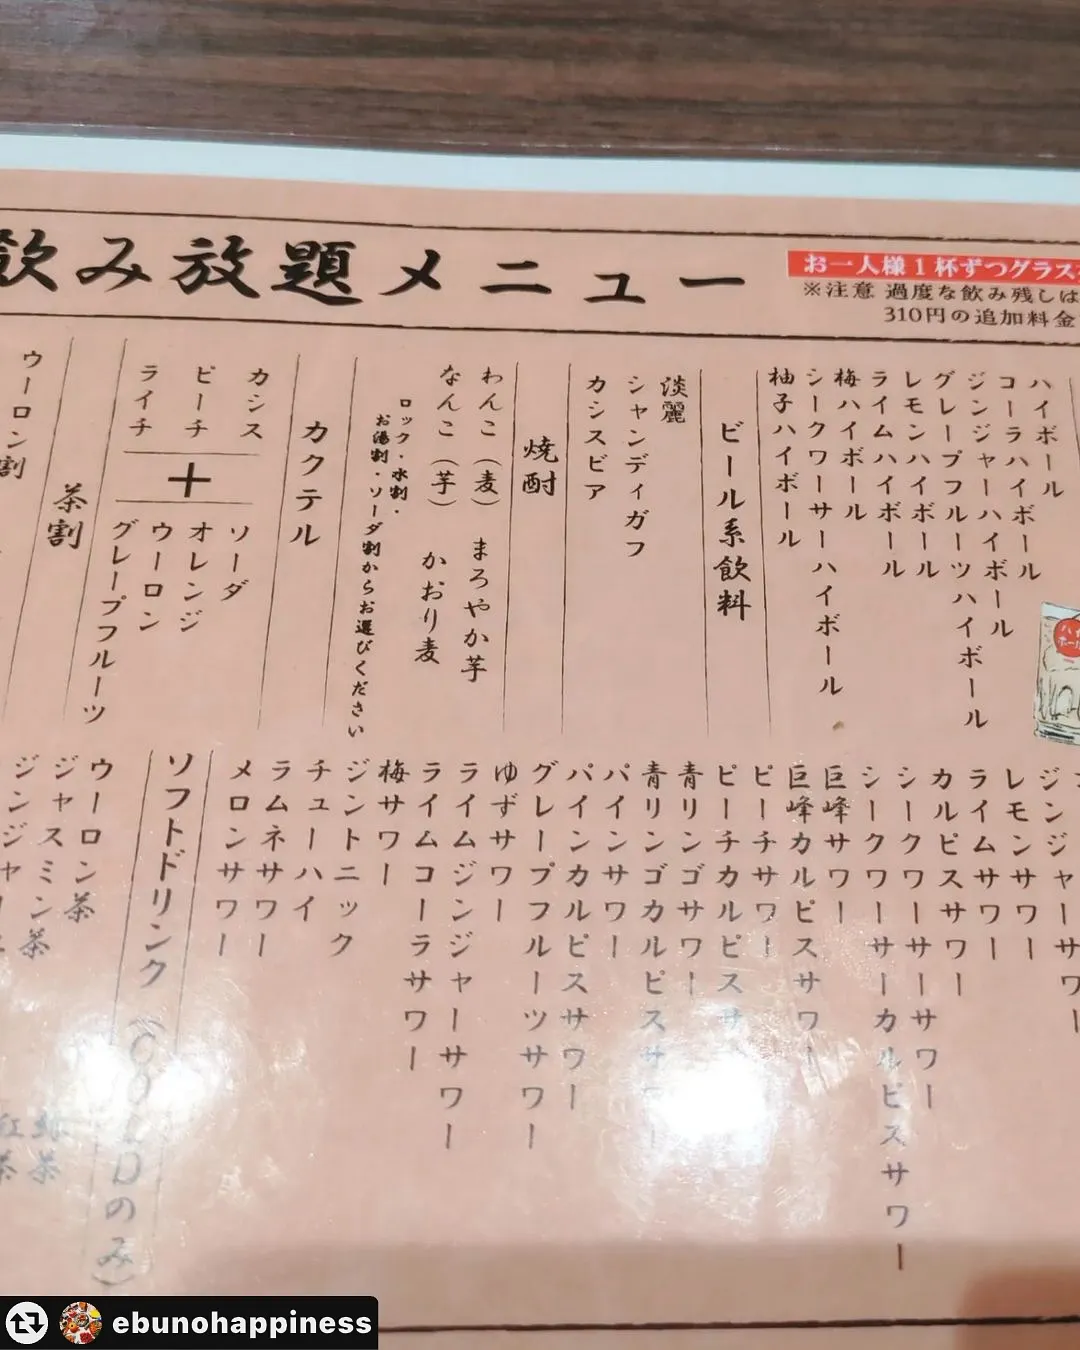 飲み放題メニュー
お一人様1杯ずつグラス
※注意 過度な飲み残しは
310円の追加料金
ハイボール
コーラハイボール
ジンジャーハイボール
グレープフルーツハイボール
レモンハイボール
ライムハイボール
梅ハイボール
シークワーサーハイボール
柚子ハイボール
ビール系飲料
淡麗
シャンディガフ
カシスビア
焼酎
わんこ(麦) まろやか芋
なんこ(芋) かおり麦
ロック・水割・
お湯割・ソーダ割からお選びください
カクテル
カシス
ピーチ
ライチ
+
ソーダ
オレンジ
ウーロン
グレープフルーツ
茶割
ウーロン割
ハイボール
ジンジャーサワー
レモンサワー
ライムサワー
カルピスサワー
シークワーサーサワー
シークワーサーカルピスサワー
巨峰サワー
巨峰カルピスサワー
ピーチサワー
ピーチカルピスサ
青リンゴサワー
青リンゴカルピスサワー
パインサワー
パインカルピスサワー
グレープフルーツサワー
ゆずサワー
ライムジンジャーサワー
ライムコーラサワー
梅サワー
ジントニック
チューハイ
ラムネサワー
メロンサワー
ソフトドリンク(COLDのみ)
ウーロン茶
ジャスミン茶
ジンジャー
緑茶
紅茶
ebunohappiness